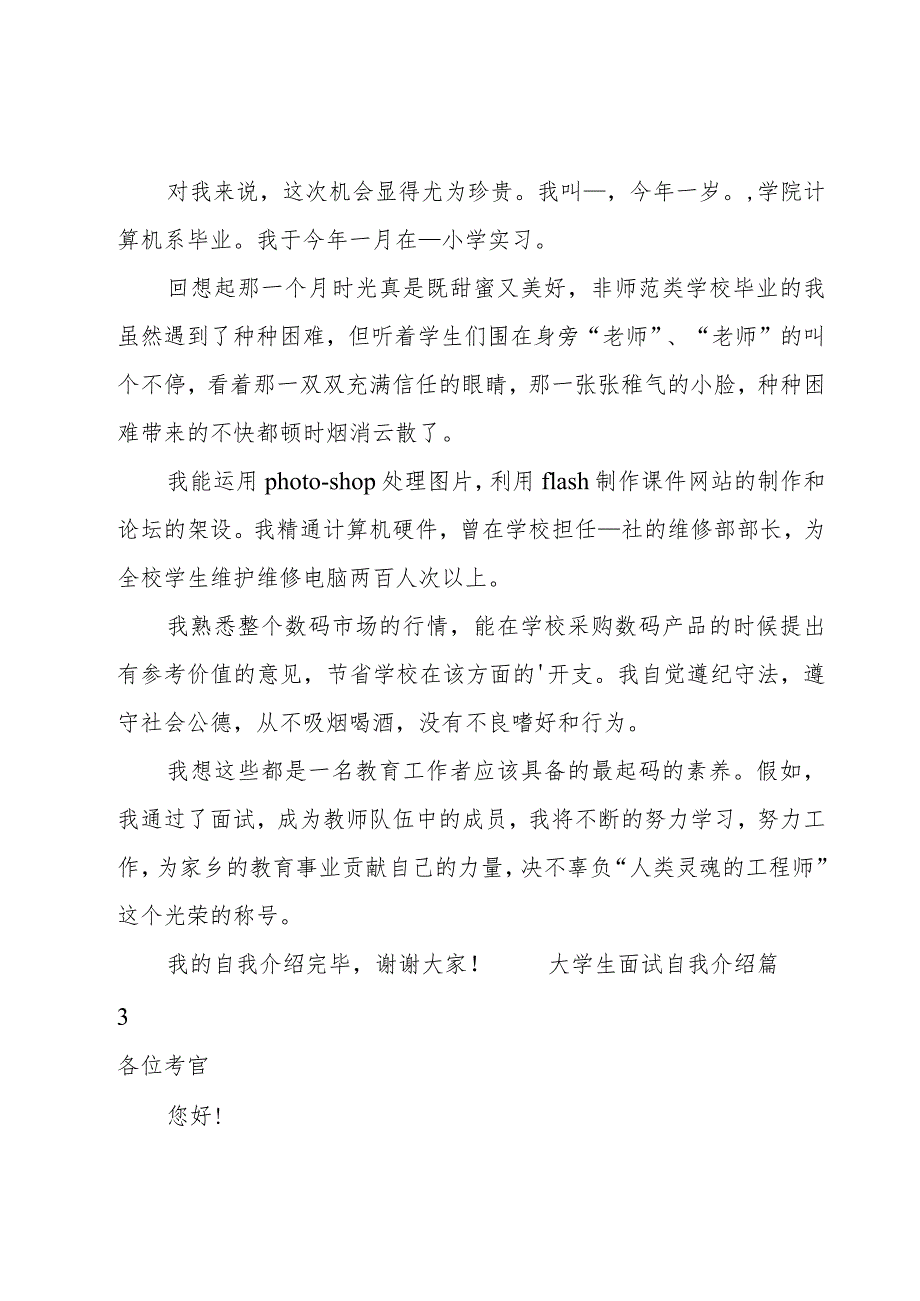 对我来说，这次机会显得尤为珍贵。我叫—，今年一岁。,学院计
算机系毕业。我于今年一月在—小学实习。
回想起那一个月时光真是既甜蜜又美好，非师范类学校毕业的我
虽然遇到了种种困难，但听着学生们围在身旁“老师”、“老师”的叫
个不停，看着那一双双充满信任的眼睛，那一张张稚气的小脸，种种困
难带来的不快都顿时烟消云散了。
我能运用 photo-shop 处理图片，利用 flash 制作课件网站的制作和
论坛的架设。我精通计算机硬件，曾在学校担任—社的维修部部长，为
全校学生维护维修电脑两百人次以上。
我熟悉整个数码市场的行情，能在学校采购数码产品的时候提出
有参考价值的意见，节省学校在该方面的'开支。我自觉遵纪守法，遵
守社会公德，从不吸烟喝酒，没有不良嗜好和行为。
我想这些都是一名教育工作者应该具备的最起码的素养。假如，
我通过了面试，成为教师队伍中的成员，我将不断的努力学习，努力工
作，为家乡的教育事业贡献自己的力量，决不辜负“人类灵魂的工程师”
这个光荣的称号。
我的自我介绍完毕，谢谢大家！ 大学生面试自我介绍篇
3
各位考官
您好!